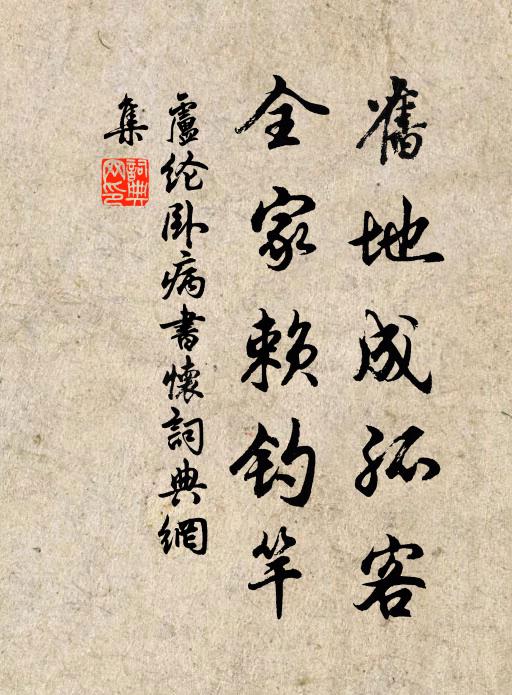 舊地成孤客
全家賴釣竿
盧纶卧病書懷詞典網
集
詞典网印